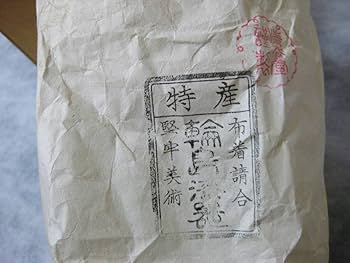 特産
布着請合
輪島漆器
堅牢美術